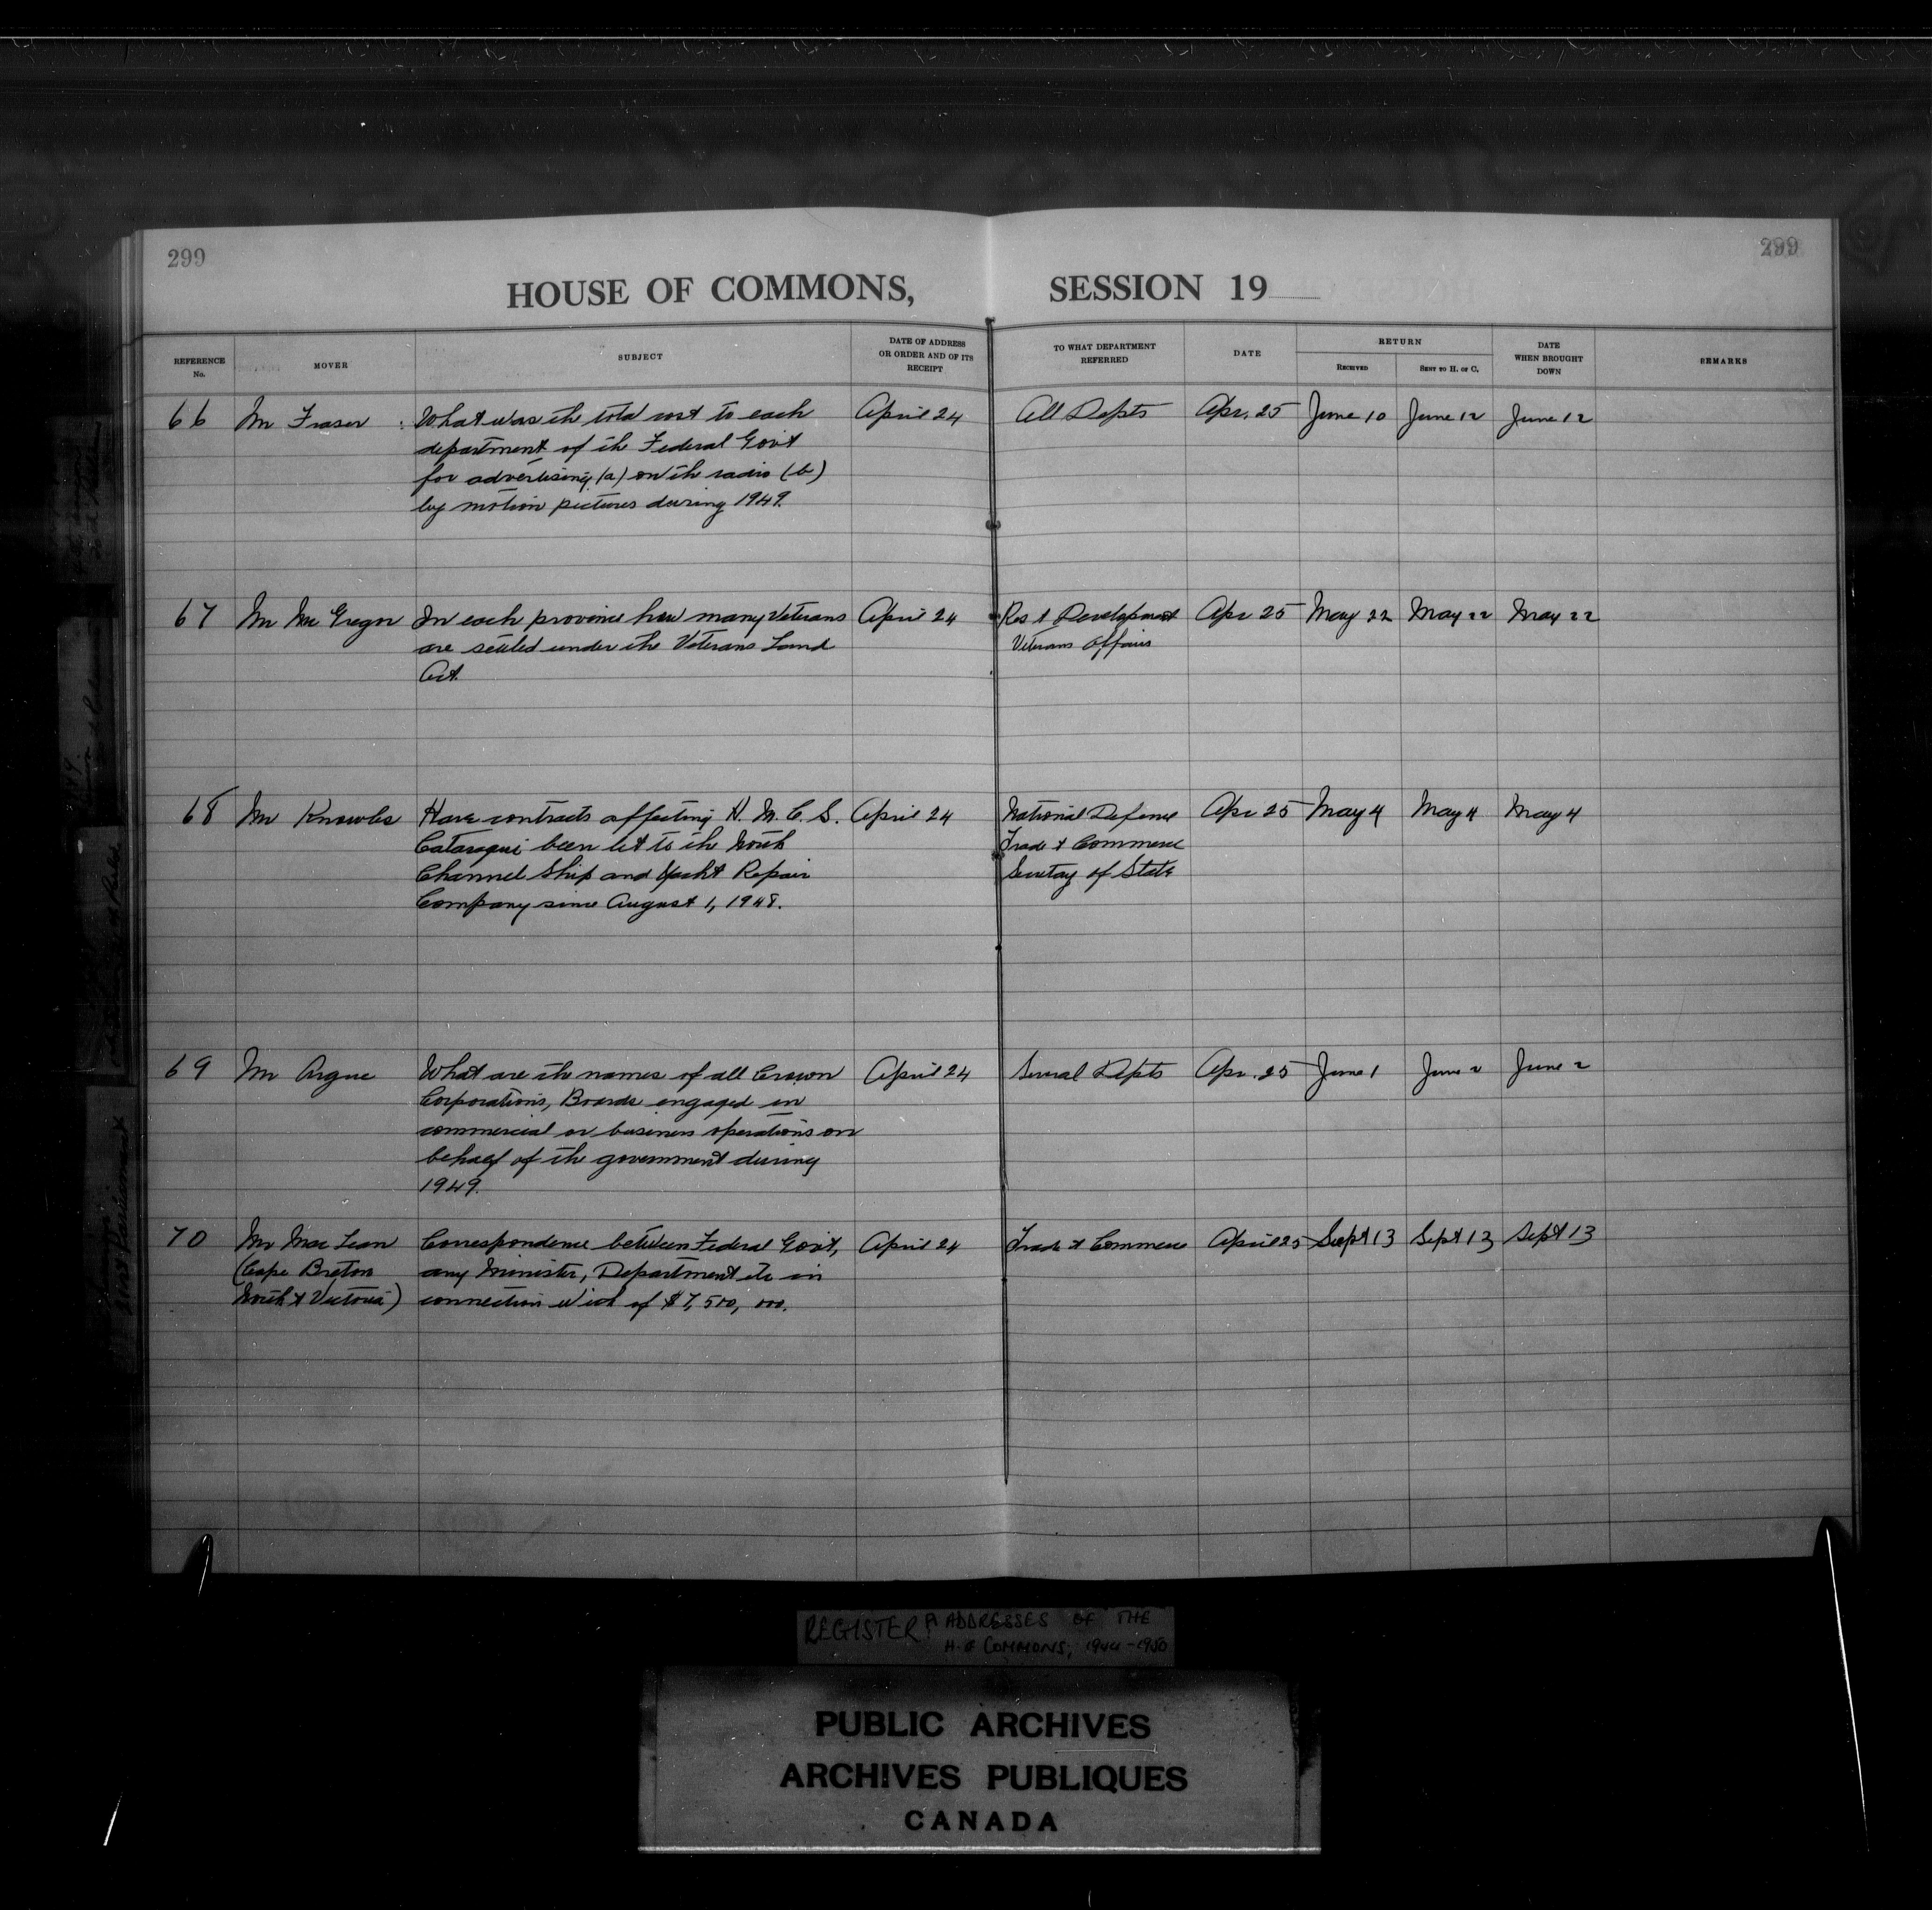 299
299
HOUSE OF COMMONS, SESSION 19
REFERENCE No.
MOVER
SUBJECT
DATE OF ADDRESS OR ORDER AND OF ITS RECEIPT
TO WHAT DEPARTMENT REFERRED
DATE
RETURN
RECEIVED
SENT TO H. OF C.
DATE WHEN BROUGHT DOWN
REMARKS
66 Mr Fraser What was the total cost to each April 24 All Depts Apr. 25 June 10 June 12 June 12
department of the Federal Gov't
for advertising (a) on the radio (b)
by motion pictures during 1949.
67 Mr Mc Gregor In each province how many Veterans April 24 Res & Development Apr 25 May 22 May 22 May 22
are settled under the Veterans Land Veterans Affairs
Act.
68 Mr Knowles Have contracts affecting H. M. C. S. April 24 National Defence Apr 25 May 4 May 4 May 4
Cataraqui been let to the North Trade & Commerce
Channel Ship and Yacht Repair Secretary of State
Company since August 1, 1948.
69 Mr Argue What are the names of all Crown April 24 Several Depts Apr. 25 June 1 June 2 June 2
Corporations, Boards engaged in
commercial or business operations on
behalf of the government during
1949.
70 Mr Mac Lean Correspondence between Federal Gov't, April 24 Trade & Commerce April 25 Sept 13 Sept 13 Sept 13
(Cape Breton any Minister, Department etc in
North & Victoria) connection of $7,500,000.
REGISTER ADDRESSES OF THE
H. of COMMONS, 1944-1950
PUBLIC ARCHIVES
ARCHIVES PUBLIQUES
CANADA